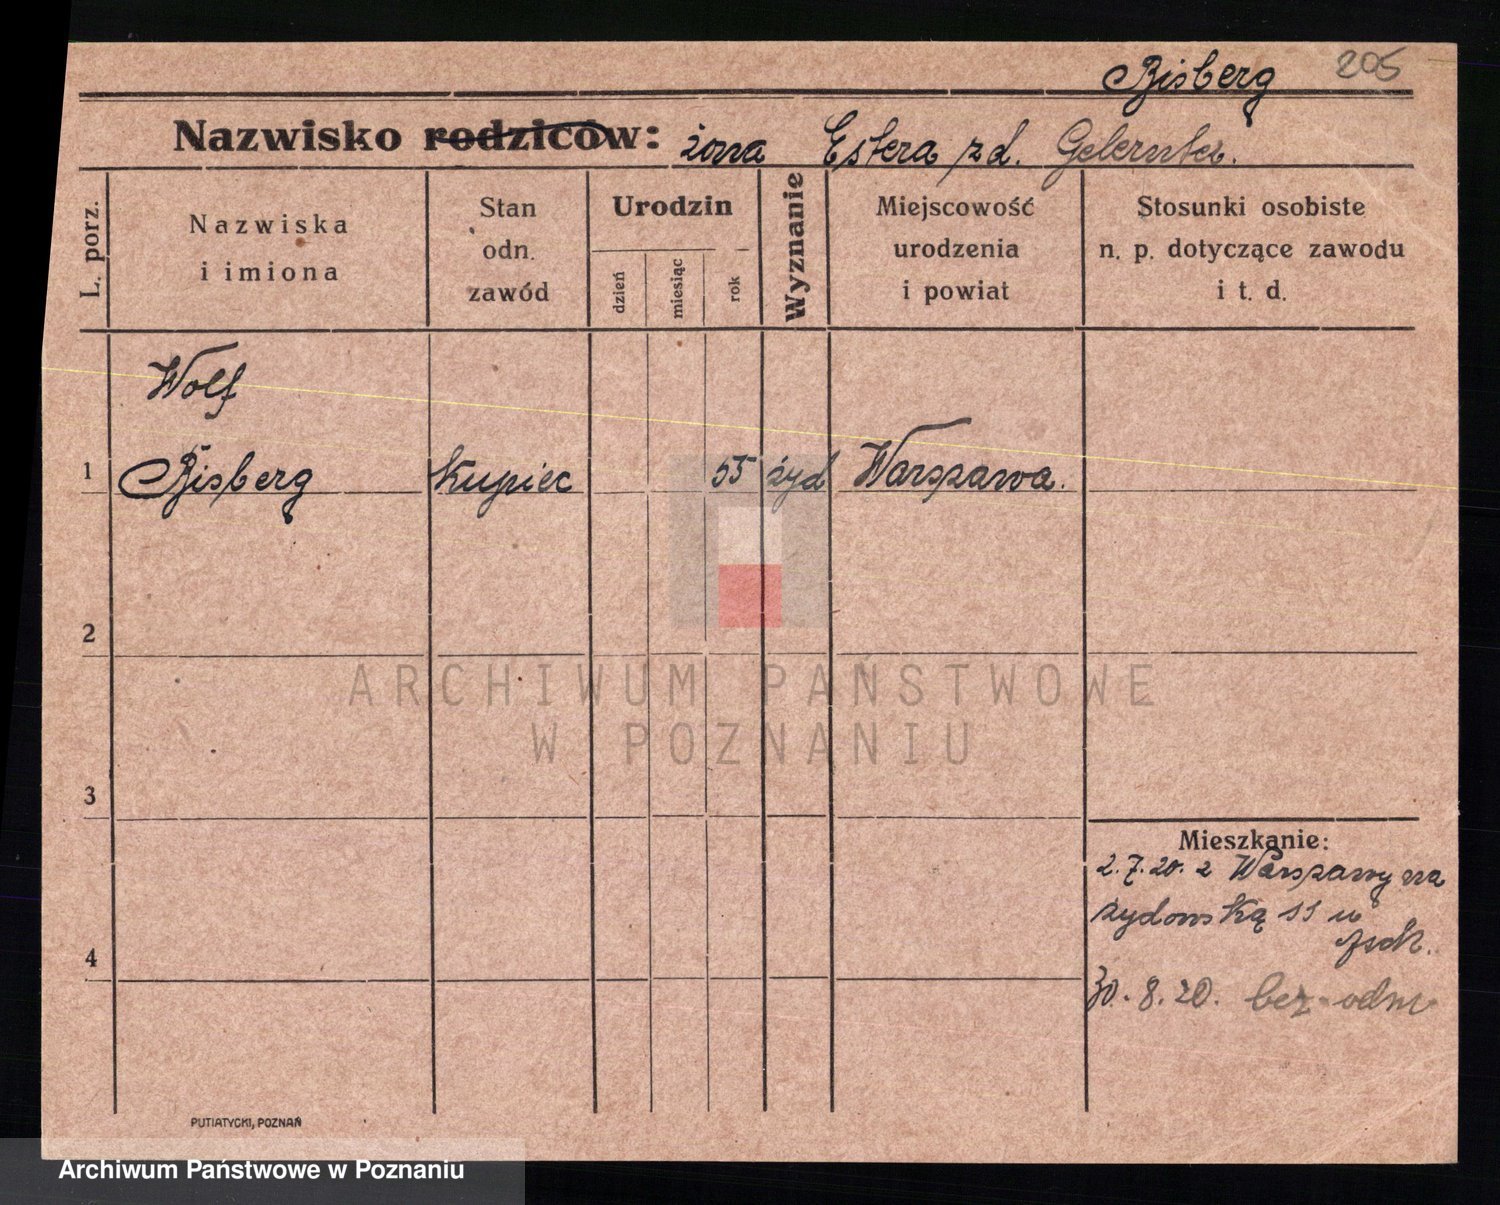 Bisberg 205
Nazwisko rodziców: żona Estera z d. Gelernter.
L. porz.
Nazwiska
i imiona
Stan
odn.
zawód
Urodzin
dzień
miesiąc
rok
Wyznanie
Miejscowość
urodzenia
i powiat
Stosunki osobiste
n. p. dotyczące zawodu
i t. d.
Wolf
1 Bisberg Kupiec 55 żyd Warszawa.
2
ARCHIWUM PAŃSTWOWE
W POZNANIU
3
Mieszkanie:
2.7.20. z Warszawy na
żydowską 11 u
4
30.8.20. bez odm
PUTIATYCKI, POZNAŃ
Archiwum Państwowe w Poznaniu